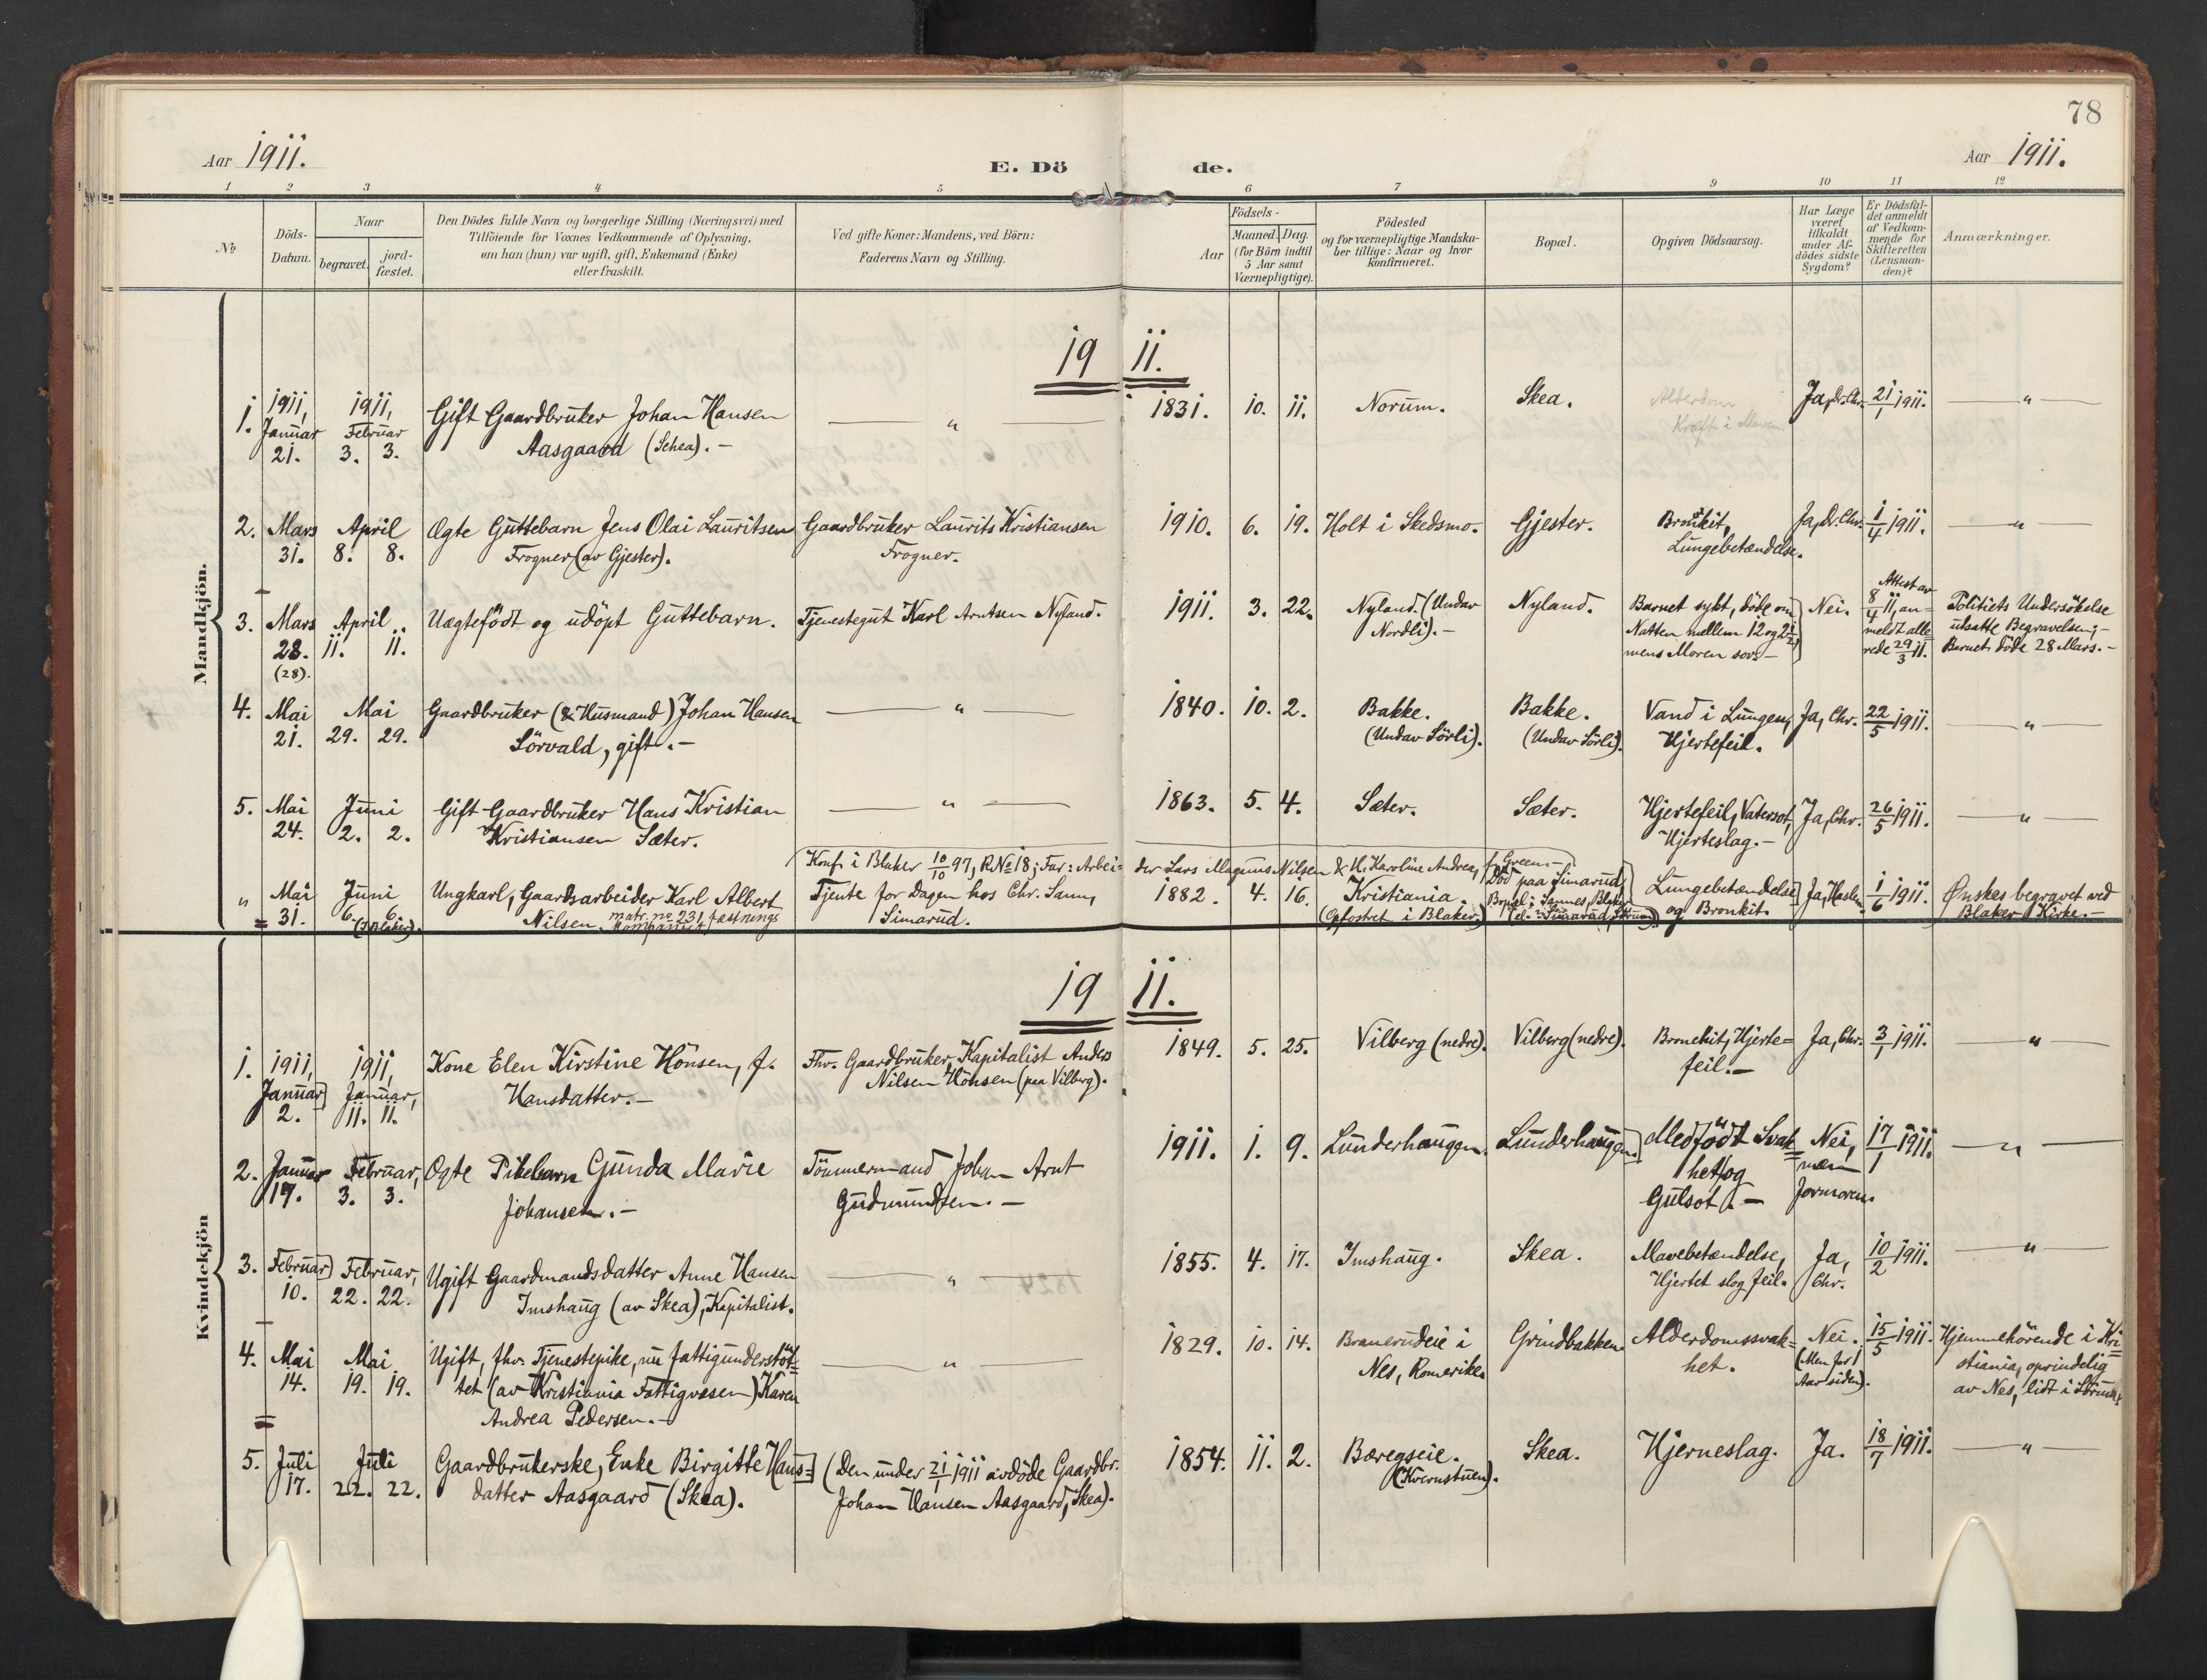 78
Aar 1911.
E. Dö de.
Aar 1911.
1 2 3 4 5 6 7 9 10 11 12
No
Döds-
Datum.
Naar
begravet.
jord-
fæstet.
Den Dödes fulde Navn og borgerlige Stilling (Næringsvei) med
Tilföiende for Voxnes Vedkommende af Oplysning,
om han (hun) var ugift, gift, Enkemand (Enke)
eller fraskilt.
Ved gifte Koner: Mandens, ved Börn:
Faderens Navn og Stilling.
Födsels-
Aar
Maaned. Dag.
(for Börn indtil
5 Aar samt
Værnepligtige).
Födested
og for værnepligtige Mandska-
ber tillige: Naar og hvor
konfirmeret.
Bopæl.
Opgiven Dödsaarsag.
Har Læge
været
tilkaldt
under Af-
dödes sidste
Sygdom?
Er Dödsfal-
det anmeldt
af Vedkom-
mende for
Skifteretten
(Lensman-
den)?
Anmærkninger.
Mandkjön.
19 11.
1. 1911, Januar 21. 1911, Februar 3. 3. Gift Gaardbruker Johan Hansen
Aasgaard (Schea). —
— " — 1831. 10. 11. Norum. Skea. Alderdom
Kræft i Maven
Ja, Dr. Chr. 21/1 1911. — " —
2. Mars 31. April 8. 8. Ægte Guttebarn Jens Olai Lauritsen
Frogner (av Gjester).
Gaardbruker Laurits Kristiansen
Frogner.
1910. 6. 19. Holt i Skedsmo. Gjester. Bronkit,
Lungebetændelse.
Ja, dr. Chr. 1/4 1911. — " —
3. Mars 28. (28). April 11. 11. Uægtefödt og udöpt Guttebarn. Tjenestegut Karl Arntsen Nyland.
1911. 3. 22. Nyland. (Undav
Nordli). —
Nyland. Barnet sykt, döde om
Natten mellem 12 og 2
mens Moren sov. —
Nei. Attest av
8/4 11, an-
meldt alle-
rede 29/3 11.
Politiets Undersökelse
utsatte Begravelsen; —
Barnet döde 28 Mars. —
4. Mai 21. Mai 29. 29. Gaardbruker (& Husmand) Johan Hansen
Sörvald, gift. —
— " — 1840. 10. 2. Bakke.
(Undav Sörli).
Bakke.
(Undav Sörli).
Vand i Lungen,
Hjertefeil.
Ja, Chr. 22/5 1911. — " —
5. Mai 24. Juni 2. 2. Gift Gaardbruker Hans Kristian
Kristiansen Sæter.
— " — 1863. 5. 4. Sæter. Sæter. Hjertefeil, Vatersot,
Hjerteslag. —
Ja, Chr. 26/5 1911. — " —
Konf. i Blaker 10/10 97, R No 18; Far: Arbei-
der Lars Magnus Nilsen & H. Karoline Andrea, f. Green. —
" Mai 31. Juni 6. 6. (i Blaker). Ungkarl, Gaardsarbeider Karl Albert
Nilsen. matr. no 231, fæstnings
kompani 4
Tjente for Dagen hos Chr. Sann,
Simarud.
1882. 4. 16. Kristiania.
(Opfostret i Blaker.)
Död paa Simarud;
Bopæl: Sannes, Blaker
Lungebetændelse
og Bronkit.
Ja, Hasle. 1/6 1911. Ønskes begravet ved
Blaker Kirke. —
Kvindekjön
19 11.
1. 1911, Januar 2. 1911, Januar, 11. 11. Kone Elen Kirstine Hönsen, f.
Hansdatter. —
Fhv. Gaardbruker, Kapitalist Anders
Nilsen Hönsen (paa Vilberg).
1849. 5. 25. Vilberg (nedre). Vilberg (nedre). Bronchit, Hjerte-
feil. —
Ja, Chr. 3/1 1911. — " —
2. Januar 17. Februar, 3. 3. Ægte Pikebarn Gunda Marie
Johansen. —
Tömmermand Johan Arnt
Gudmundsen. —
1911. 1. 9. Lunderhaugen. Lunderhaugen. Medfödt Svak-
het og
Gulsot. —
Nei,
men
Jormoren.
17/1 1911. — " —
3. Februar 10. Februar, 22. 22. Ugift Gaardmandsdatter Anne Hansen
Imshaug (av Skea), Kapitalist.
— " — 1855. 4. 17. Imshaug. Skea. Mavebetændelse,
Hjertet slog feil.
Ja,
Chr.
10/2 1911. — " —
4. Mai 14. Mai 19. 19. Ugift, fhv. Tjenestepike, nu fattigunderstöt-
tet (av Kristiania Fattigvæsen) Karen
Andrea Pedersen. —
— " — 1829. 10. 14. Branerudeie i
Nes, Romerike.
Grindbakken. Alderdomssvak-
het.
Nei.
(Men for 1
Aar siden).
15/5 1911. Hjemmehörende i Kri-
stiania, oprindelig
av Nes, lidt i Sörum.
5. Juli 17. Juli 22. 22. Gaardbrukerske, Enke Birgitte Hans-
datter Aasgaard (Skea).
(Den under 21/1 1911 avdöde Gaardbr.
Johan Hansen Aasgaard, Skea).
1854. 11. 2. Bæregseie.
(Kvernstuen).
Skea. Hjerneslag. Ja. 18/7 1911. — " —